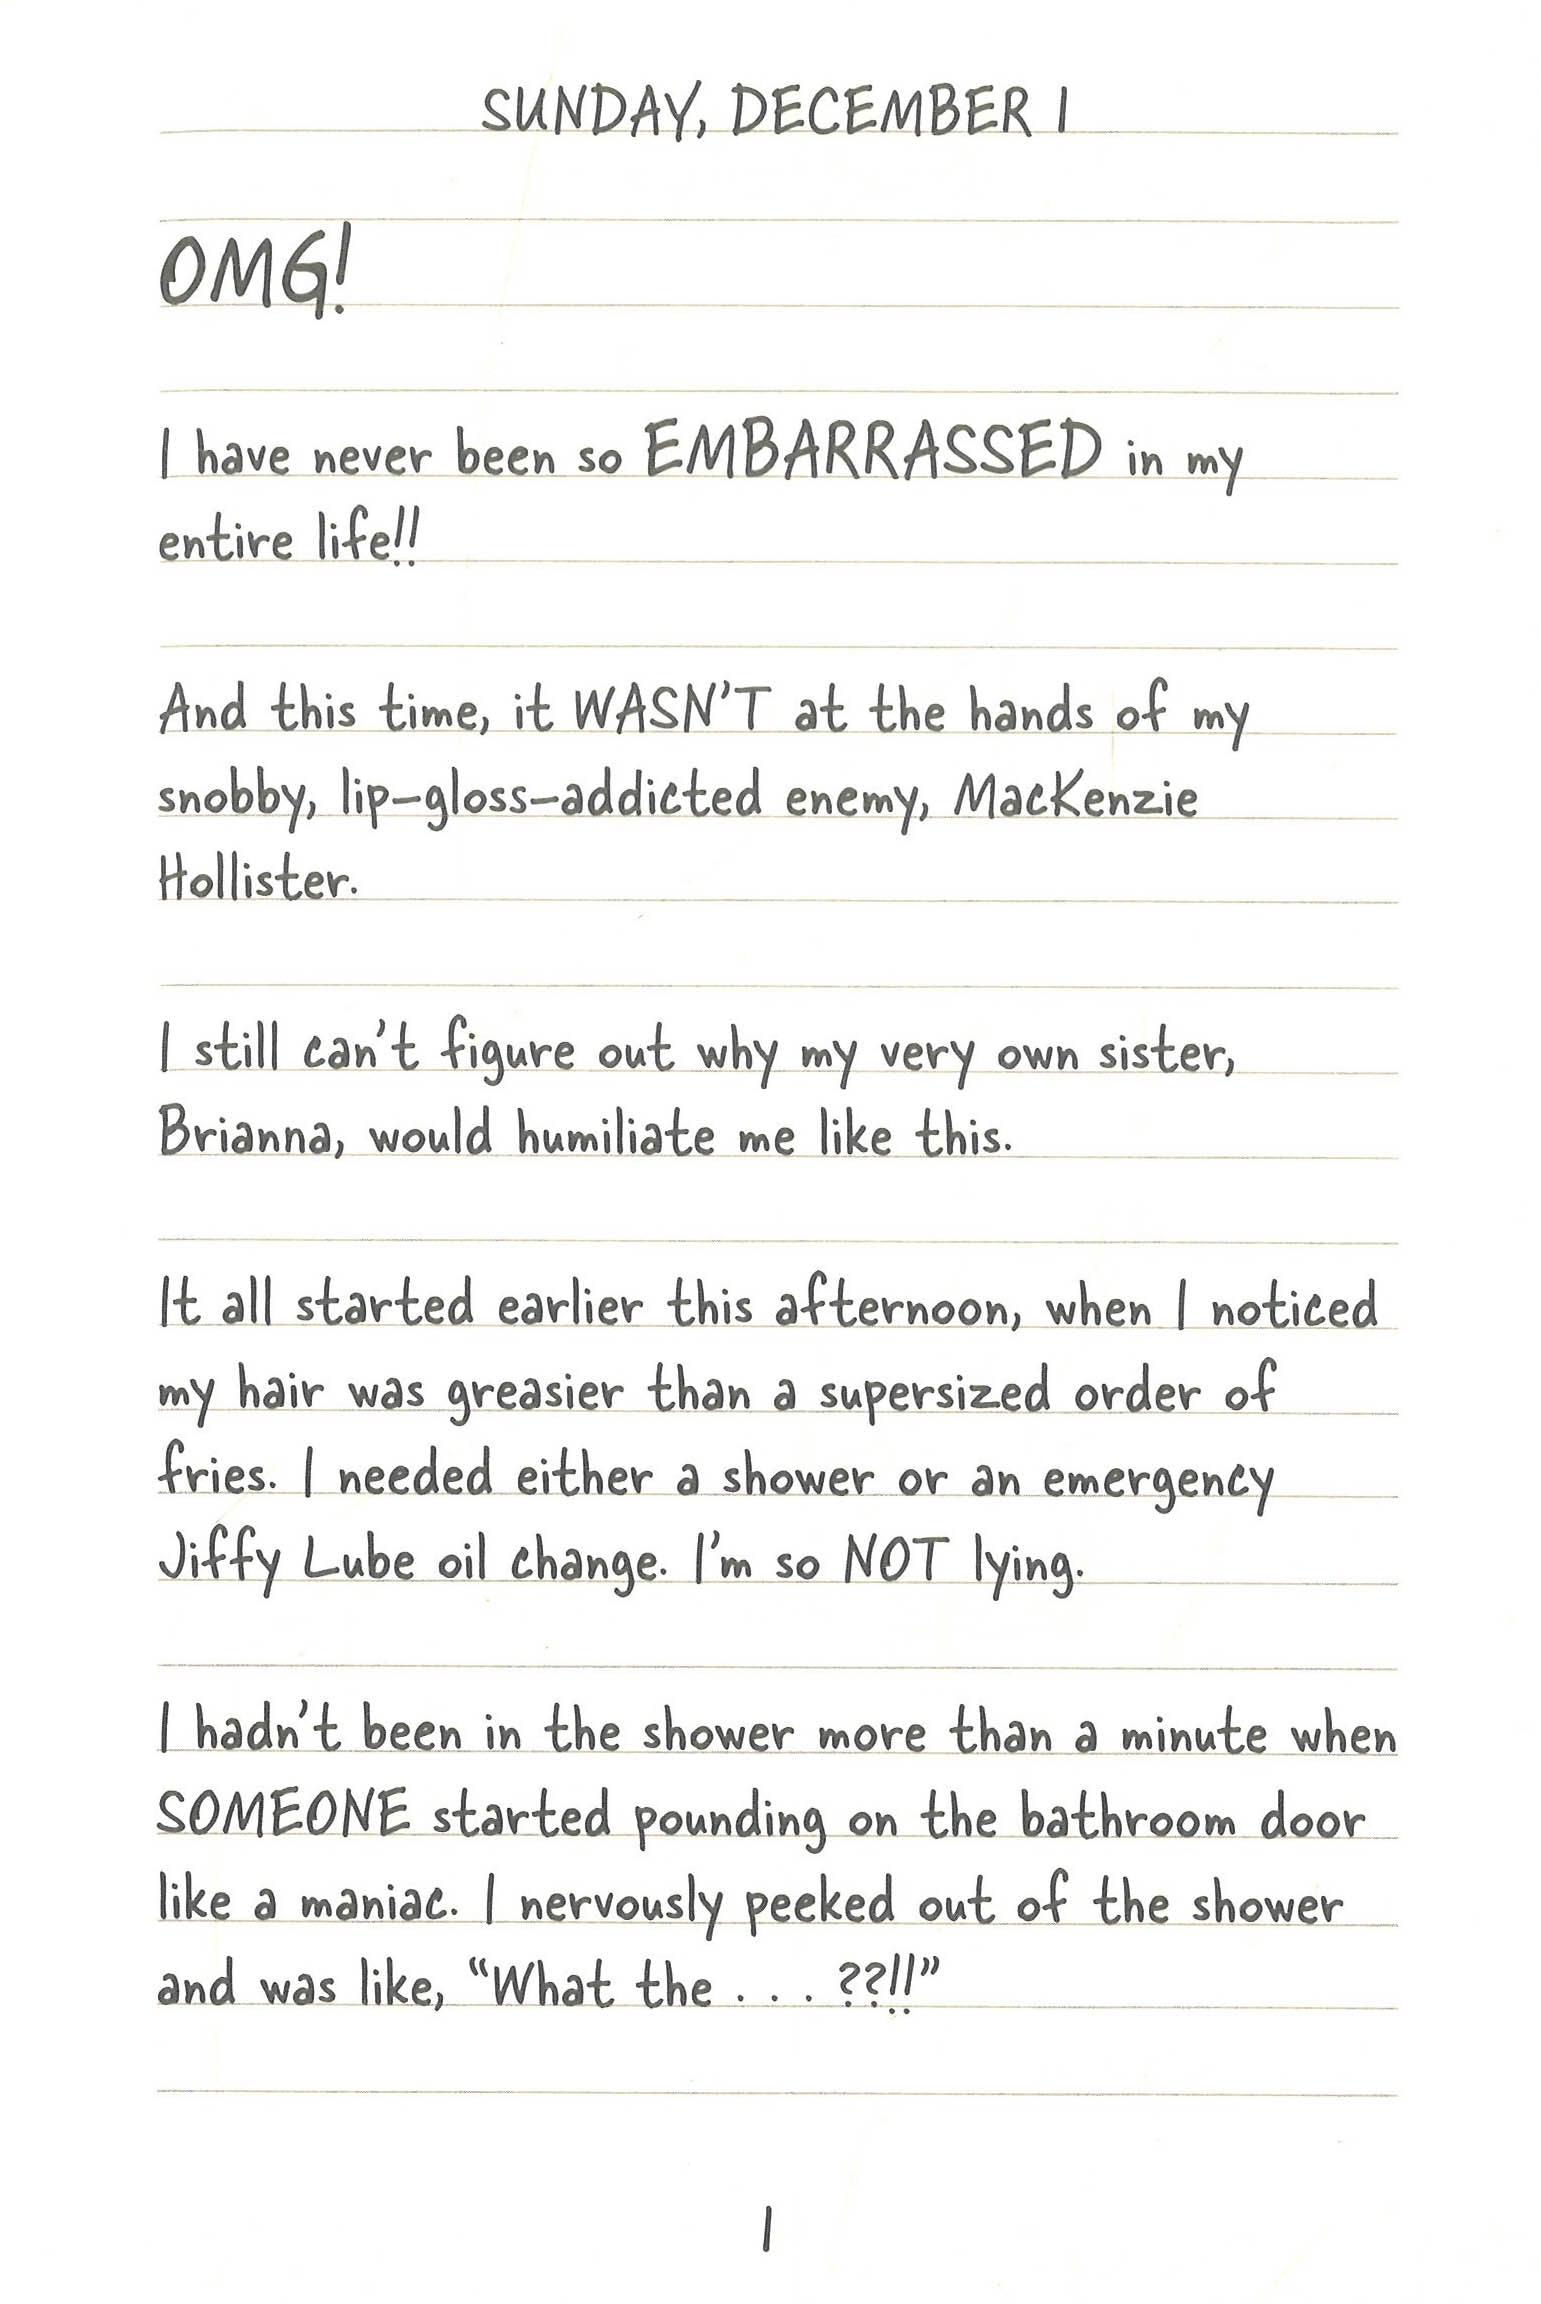 SUNDAY, DECEMBER 1
OMG!
I have never been so EMBARRASSED in my
entire life!!
And this time, it WASN'T at the hands of my
snobby, lip-gloss-addicted enemy, MacKenzie
Hollister.
I still can't figure out why my very own sister,
Brianna, would humiliate me like this.
It all started earlier this afternoon, when I noticed
my hair was greasier than a supersized order of
fries. I needed either a shower or an emergency
Jiffy Lube oil change. I'm so NOT lying.
I hadn't been in the shower more than a minute when
SOMEONE started pounding on the bathroom door
like a maniac. I nervously peeked out of the shower
and was like, “What the . . . ??!!”
1